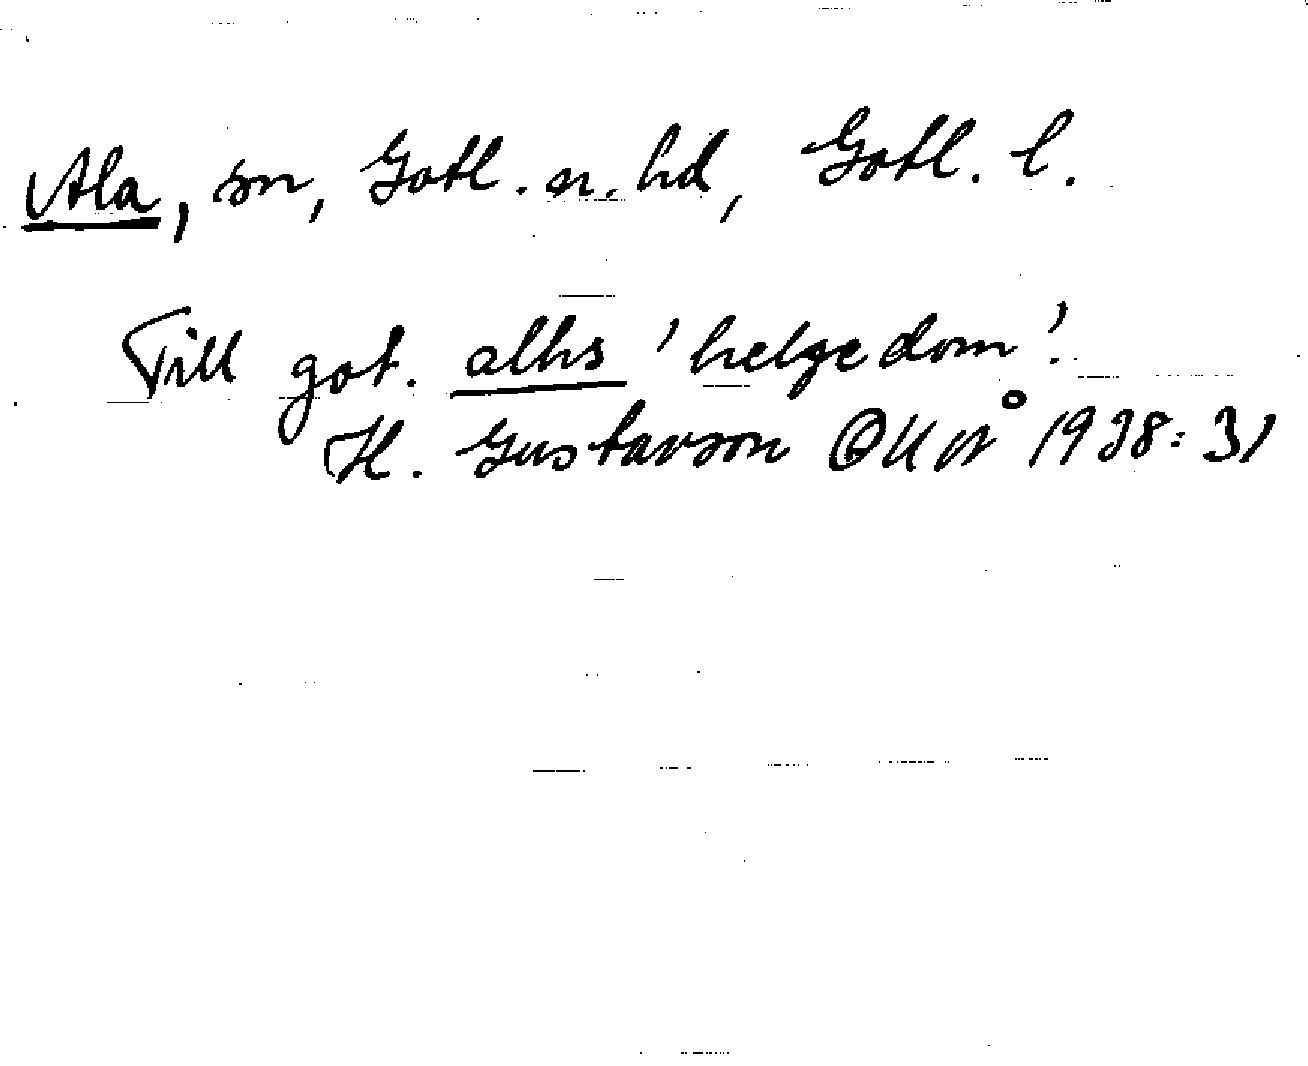 Ala, sn, Gotl. n. hd, Gotl. l.
Till got. alhs 'helgedom'.
H. Gustavson 1938:31